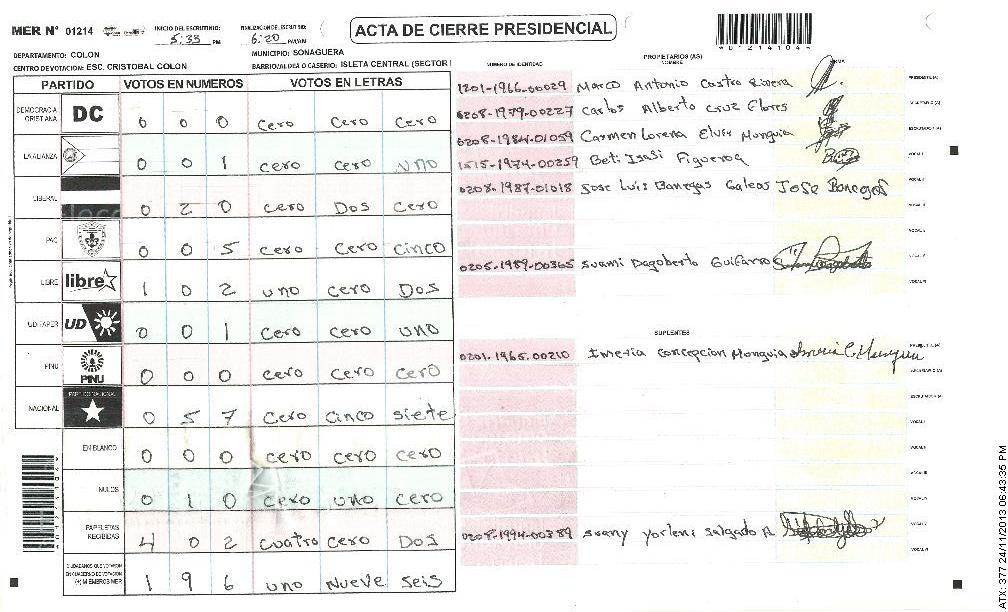 MER N° 01214
INICIO DEL ESCRUTINIO: 5:33 PM
FINALIZACION DEL ESCRUTINIO: 6:20 PM/AM
ACTA DE CIERRE PRESIDENCIAL
*01214104*
DEPARTAMENTO: COLON
MUNICIPIO: SONAGUERA
CENTRO DE VOTACION: ESC. CRISTOBAL COLON
BARRIO/ALDEA O CASERIO: ISLETA CENTRAL (SECTOR I
PARTIDO VOTOS EN NUMEROS VOTOS EN LETRAS
DEMOCRACIA CRISTIANA DC 0 0 0 Cero Cero Cero
LA ALIANZA 0 0 1 Cero Cero Uno
LIBERAL 0 2 0 Cero Dos Cero
PAC 0 0 5 Cero Cero Cinco
LIBRE libre 1 0 2 Uno Cero Dos
UD-FAPER UD 0 0 1 Cero Cero Uno
PINU PINU 0 0 0 Cero Cero Cero
NACIONAL PARTIDO NACIONAL 0 5 7 Cero Cinco Siete
EN BLANCO 0 0 0 Cero Cero Cero
NULOS 0 1 0 Cero Uno Cero
PAPELETAS RECIBIDAS 4 0 2 Cuatro Cero Dos
CIUDADANOS QUE VOTARON EN CUADERNO DE VOTACION (+) MIEMBROS MER 1 9 6 Uno Nueve Seis
NUMERO DE IDENTIDAD
PROPIETARIOS (AS)
NOMBRE
FIRMA
1201-1966-00029 Marco Antonio Castro Rivera PRESIDENTE (A)
0208-1979-00227 Carlos Alberto Cruz Flores SECRETARIO (A)
0208-1984-01059 Carmen Lorena Elvir Munguia ESCRUTADOR (A)
1515-1974-00259 Beti Isasi Figueroa VOCAL I
0208-1987-01018 Jose Luis Banegas Galeas Jose Banegas VOCAL II
VOCAL III
VOCAL IV
0205-1989-00365 Suami Dagoberto Guifarro VOCAL V
VOCAL VI
SUPLENTES
0201-1965-00210 Imeria Concepcion Munguia PRESIDENTE (A)
SECRETARIO (A)
ESCRUTADOR (A)
VOCAL I
VOCAL II
VOCAL III
VOCAL IV
0209-1994-00389 Suany Yorleni Salgado A VOCAL V
VOCAL VI
ATX: 377 24/11/2013 06:43:35 PM